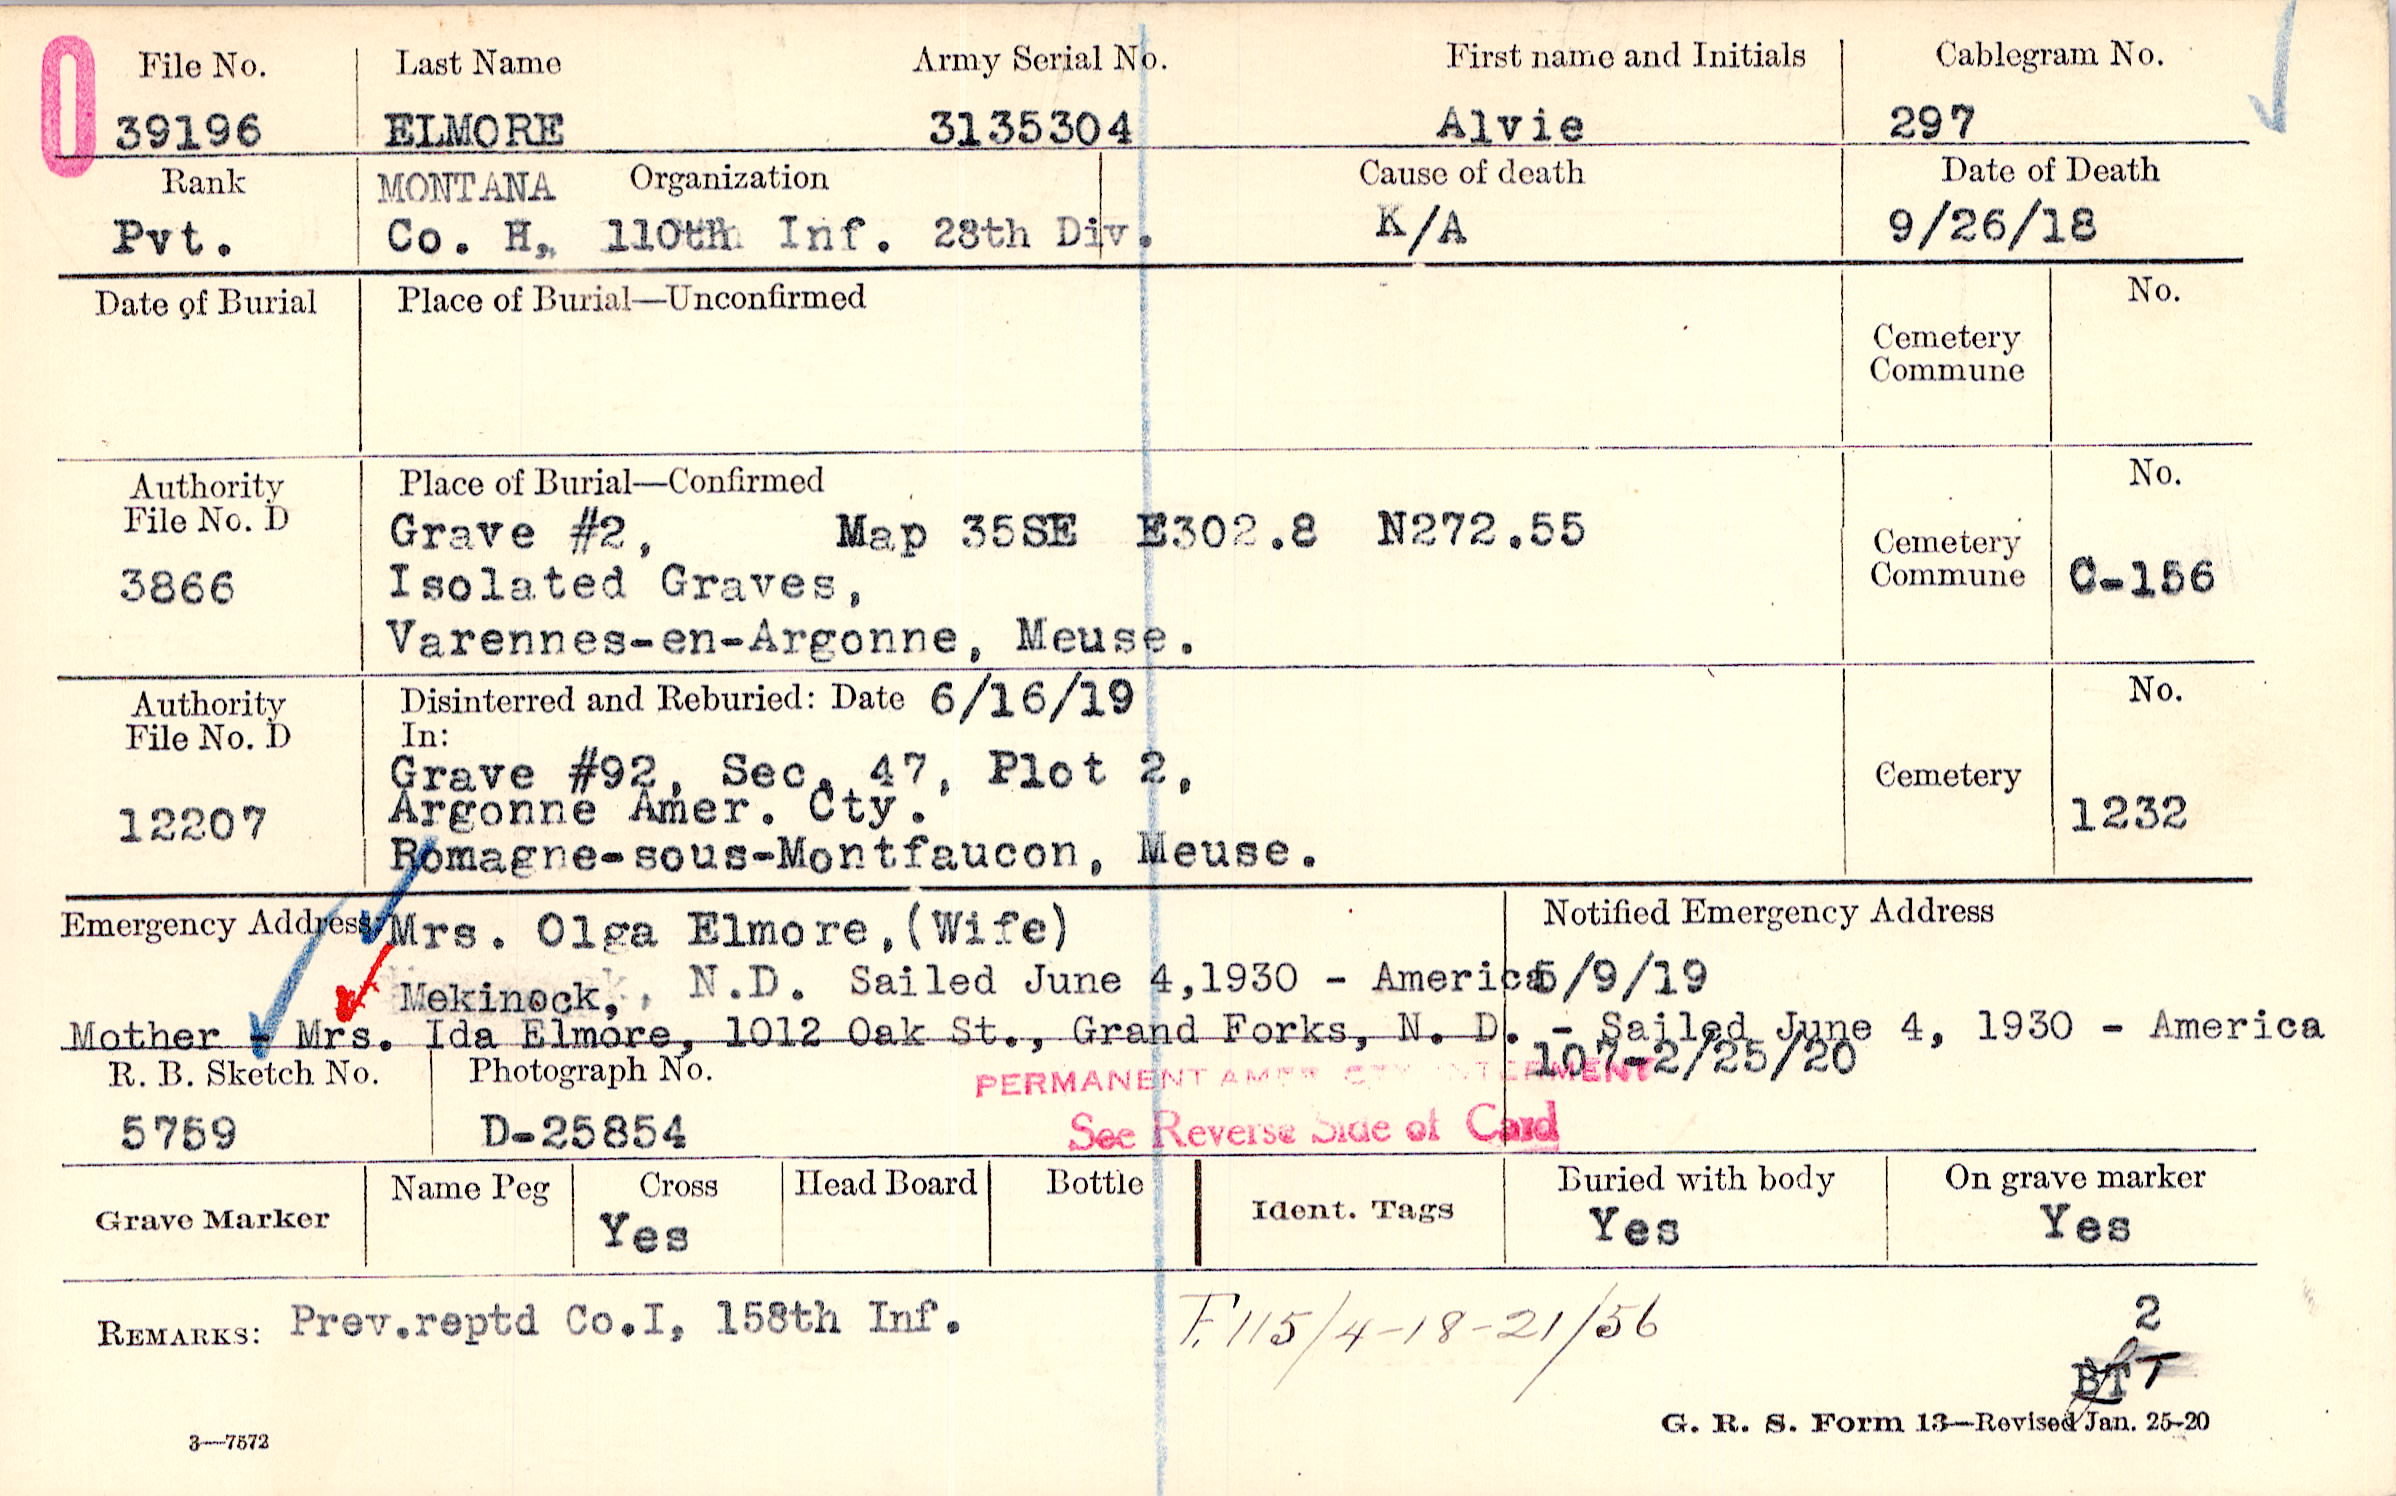 0
File No. Last Name Army Serial No. First name and Initials Cablegram No.
39196 ELMORE 3135304 Alvie 297
Rank MONTANA Organization Cause of death Date of Death
Pvt. Co. H, 110th Inf. 28th Div. K/A 9/26/18
Date of Burial Place of Burial—Unconfirmed No.
Cemetery
Commune
Authority Place of Burial—Confirmed No.
File No. D Grave #2, Map 35SE E302.8 N272.55 Cemetery
3866 Isolated Graves, Commune C-156
Varennes-en-Argonne, Meuse.
Authority Disinterred and Reburied: Date 6/16/19 No.
File No. D In:
Grave #92, Sec. 47, Plot 2, Cemetery
12207 Argonne Amer. Cty. 1232
Romagne-sous-Montfaucon, Meuse.
Emergency Address Mrs. Olga Elmore,(Wife) Notified Emergency Address
Mekinock, N.D. Sailed June 4,1930 - America 5/9/19
Mother - Mrs. Ida Elmore, 1012 Oak St., Grand Forks, N. D. - Sailed June 4, 1930 - America
107-2/25/20
R. B. Sketch No. Photograph No. PERMANENT AMER. CTY. INTERMENT
5759 D-25854 See Reverse Side of Card
Grave Marker Name Peg Cross Head Board Bottle Ident. Tags Buried with body On grave marker
Yes Yes Yes
REMARKS: Prev.reptd Co.I, 158th Inf. F.115/4-18-21/56 2
BT T
3—7572 G. R. S. Form 13—Revised Jan. 25-20